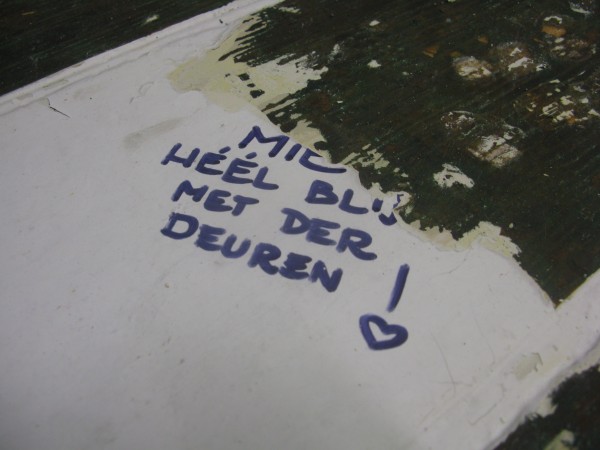 HÉÉL BLIJ
MET DER
DEUREN!